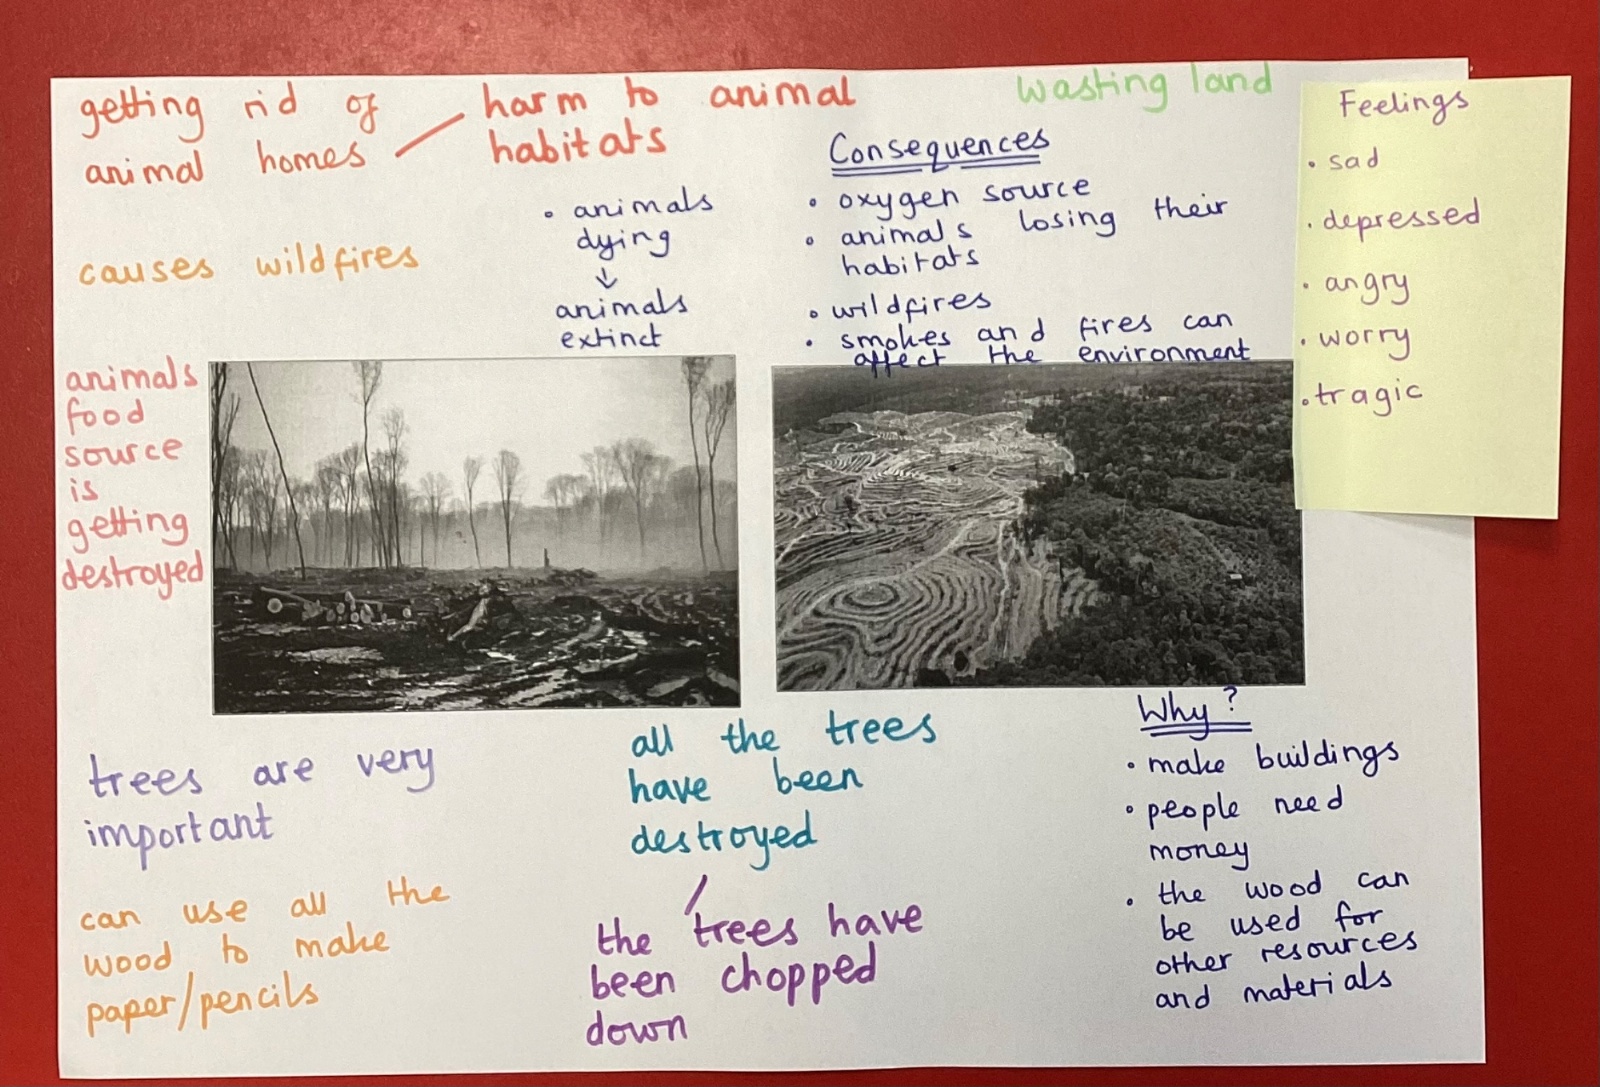 getting rid of
animal homes
harm to animal
habitats
wasting land
causes wildfires
• animals
dying
↓
animals
extinct
Consequences
• oxygen source
• animals losing their
habitats
• wildfires
• smokes and fires can
affect the environment
Feelings
• sad
• depressed
• angry
• worry
• tragic
animals
food
source
is
getting
destroyed
trees are very
important
can use all the
wood to make
paper/pencils
all the trees
have been
destroyed
the trees have
been chopped
down
Why?
• make buildings
• people need
money
• the wood can
be used for
other resources
and materials